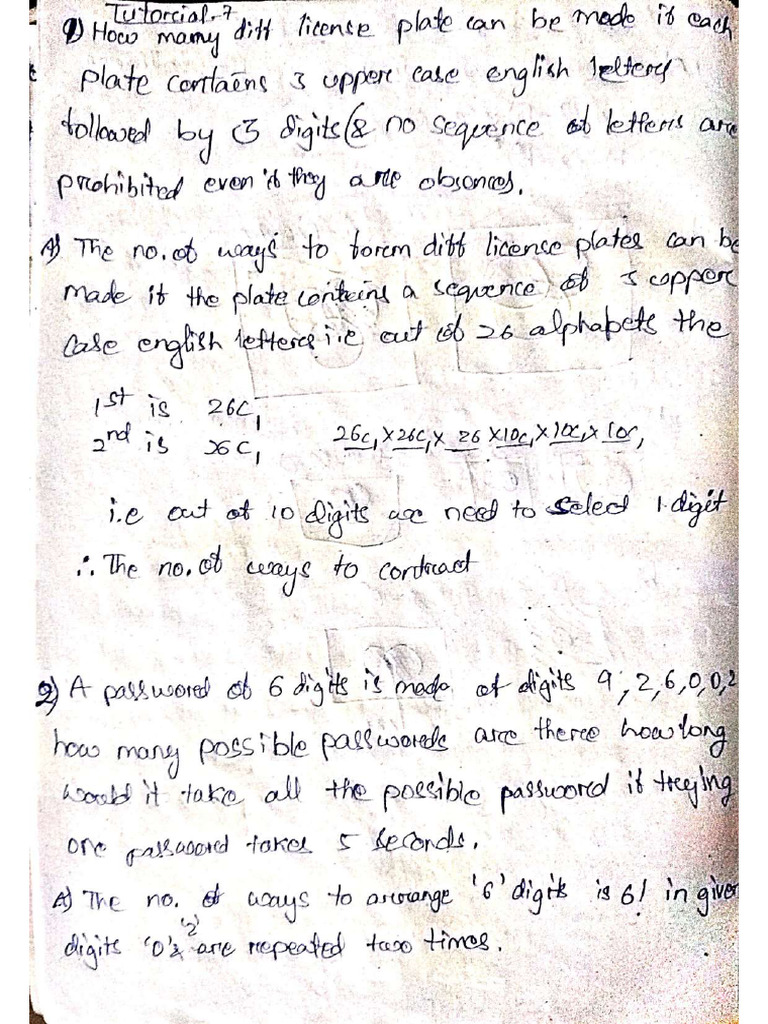 Tutorial-7
1) How many diff license plate can be made if each
plate contains 3 upper case english letters
followed by 3 digits (& no sequence of letters are
prohibited even if they are obsences.
A) The no. of ways to form diff license plates can be
made if the plate contains a sequence of 3 upper
case english letters i.e out of 26 alphabets the
1st is 26C1
2nd is 26C1 26C1 × 26C1 × 26 × 10C1 × 10C1 × 10C1
i.e out of 10 digits we need to select 1 digit
∴ The no. of ways to contract
2) A password of 6 digits is made of digits 9, 2, 6, 0, 0, 2
how many possible passwords are there how long
would it take all the possible password if trying
one password takes 5 seconds.
A) The no. of ways to arrange '6' digits is 6! in given
digits '0' & '2' are repeated two times.